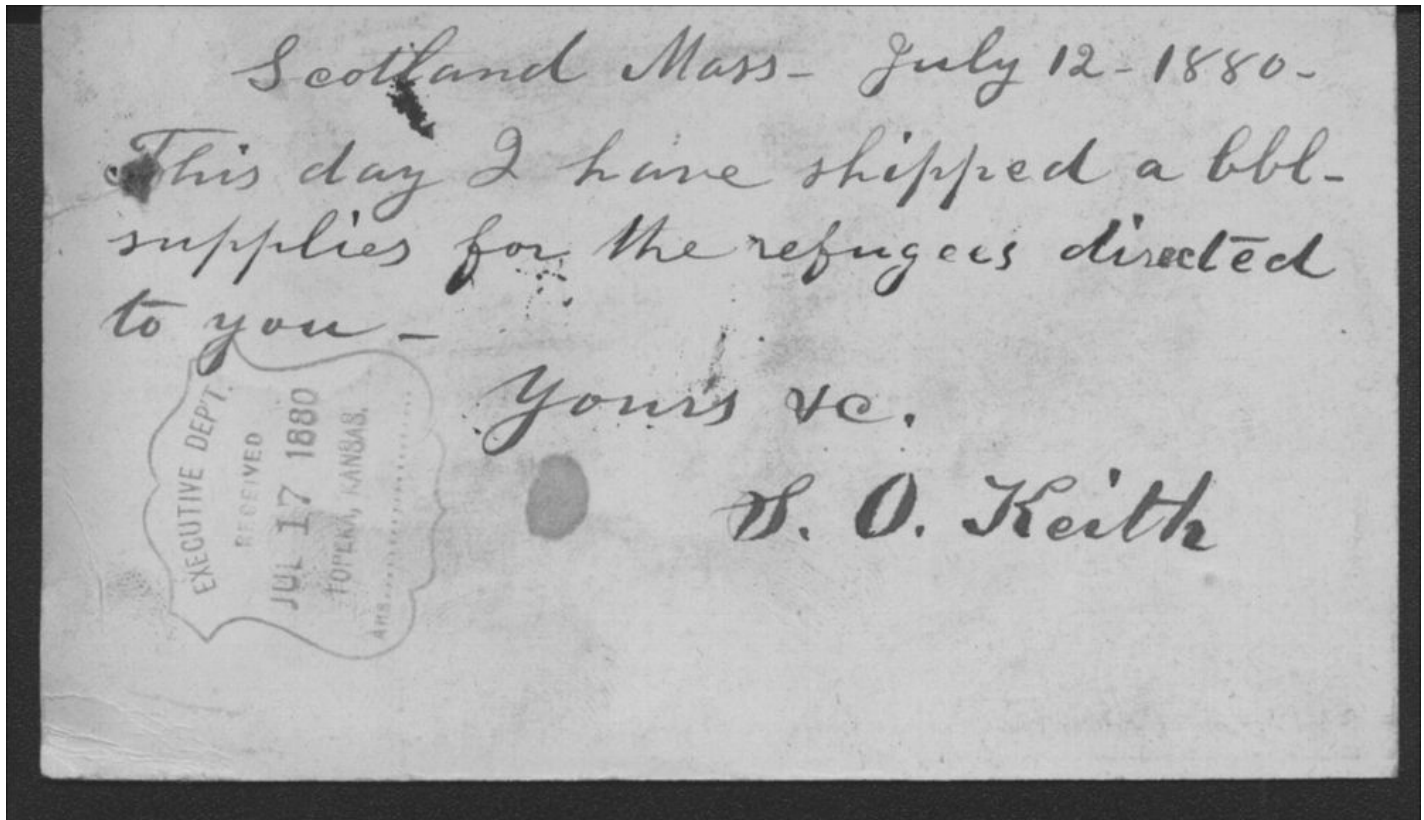 Scotland Mass- July 12-1880-
This day I have shipped a bbl-
supplies for the refugees directed
to you -
Yours &c.
S. O. Keith
EXECUTIVE DEP'T.
RECEIVED
JUL 17 1880
TOPEKA, KANSAS.
Ans..............